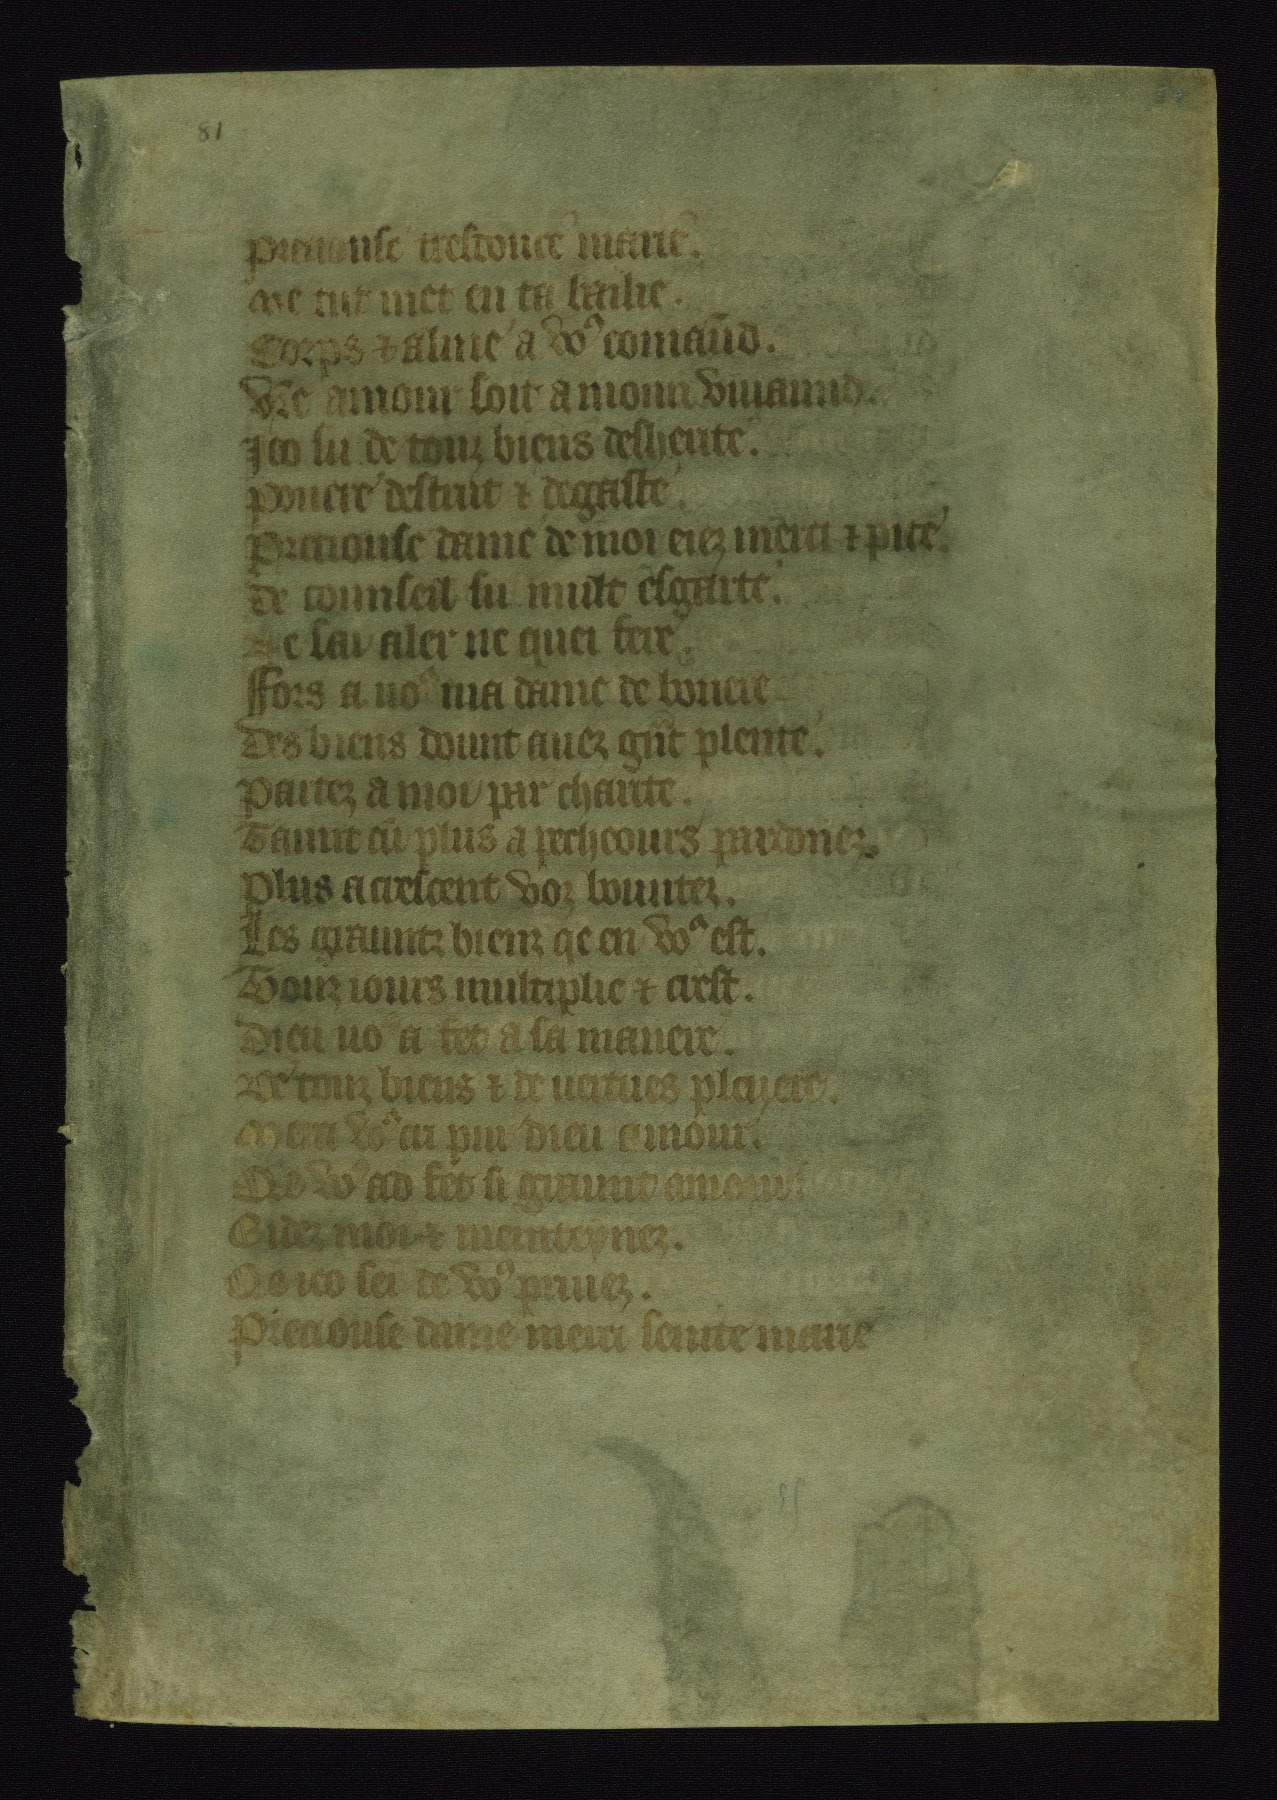 81
54
Preciouse tresdouce marie.
Me tut met en ta bailie.
Corps & alme a vo⁹ comaūd.
Vr̄e amour soit a moun viuaund.
Ico su de touz biens desherite.
Pouere destrut & degaste.
Preciouse dame de moi eiez merci & pite.
De counseil su mult esgarte.
Ne sai aler ne quei fere.
Ffors a uo⁹ ma dame de bonere
Des biens dount auez gn̄t plente.
Partez a moi par charite.
Taunt cū plus a pecheours pardonez.
Plus acrescent voz bountez.
Les grauntz bienz qe en vo⁹ est.
Touz iours multiplie & crest.
Dieu uo⁹ a fet a sa manere.
De touz biens & de uertues pleyere.
Merci vo⁹ cri pur dieu amour.
Qe vo⁹ ad fet si graunt amour.
Eidez moi & meinteynez.
Qe ico sei de vo⁹ priuez.
Preciouse dame merci seinte marie